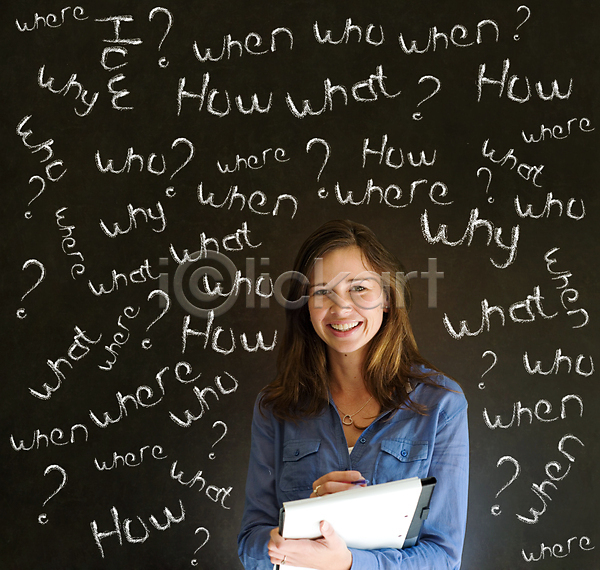 where How ? when who when ?
why How what ? How
who who? where ? How what where
? why when where ? who
where what why
? what who when
where ? How what
what where who who
when where ? ? when
where what ? when
? How ? where
iclickart